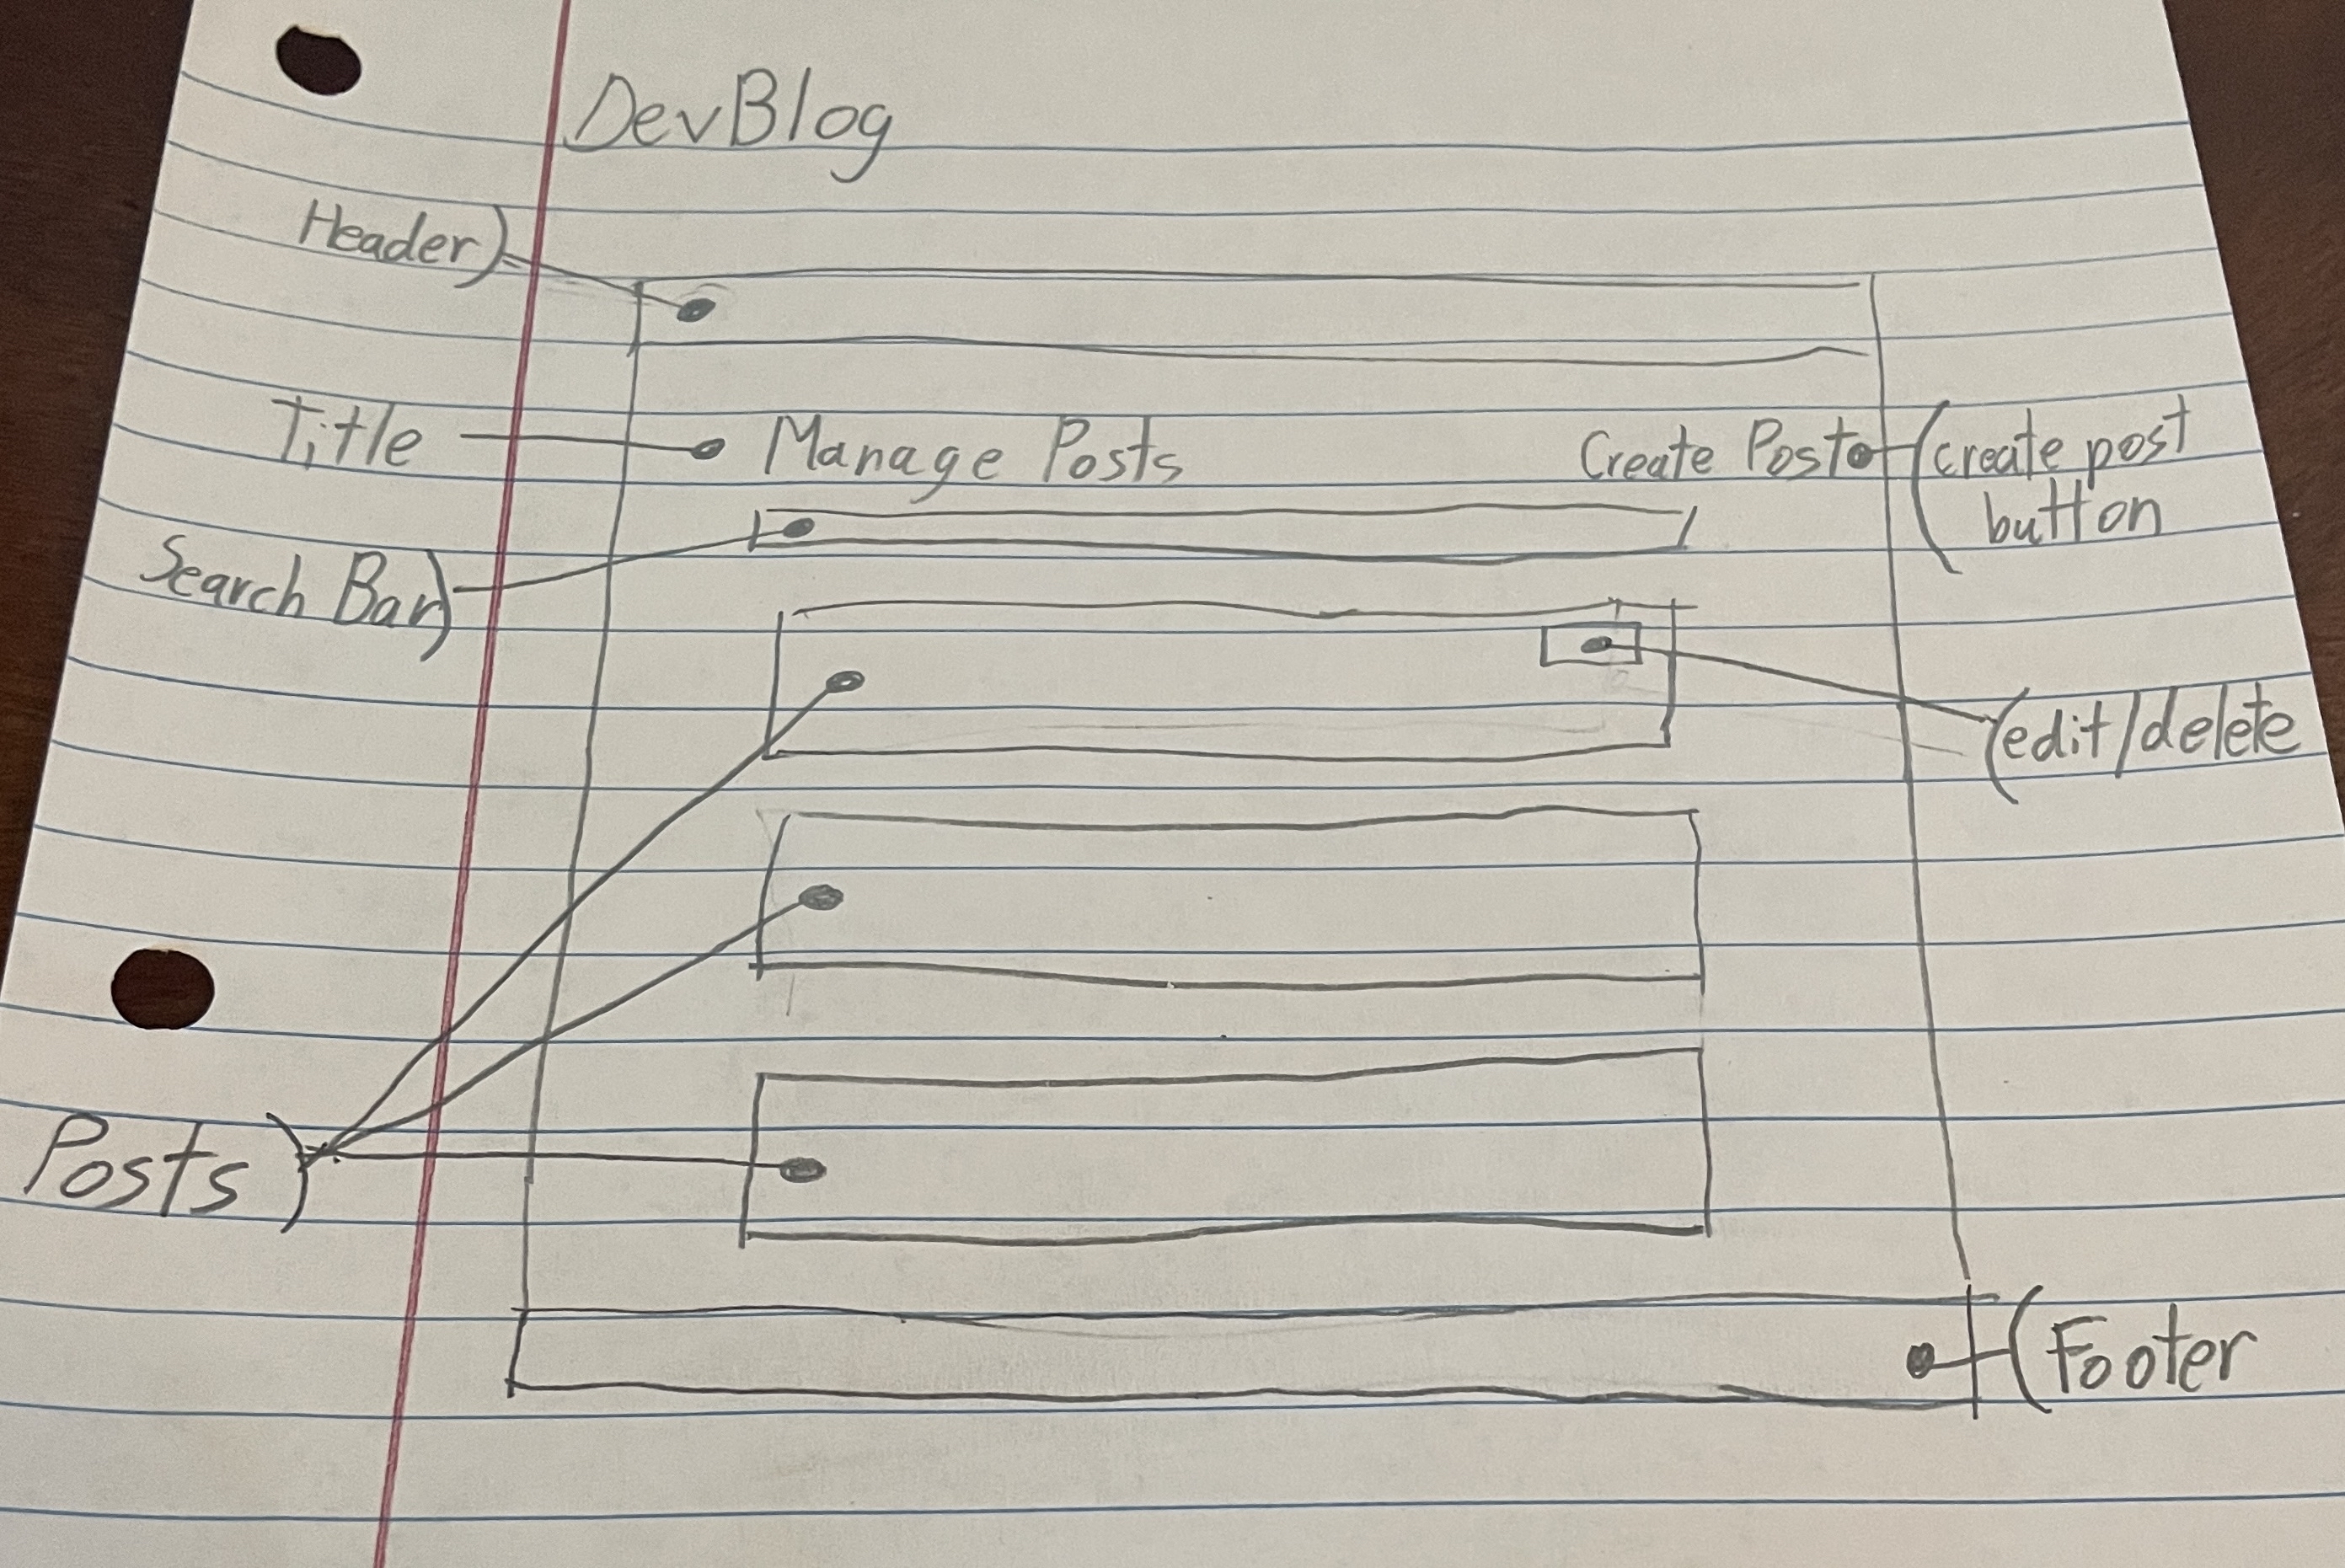 DevBlog
Header
Title
Manage Posts
Create Post
create post
button
Search Bar
edit/delete
Posts
Footer